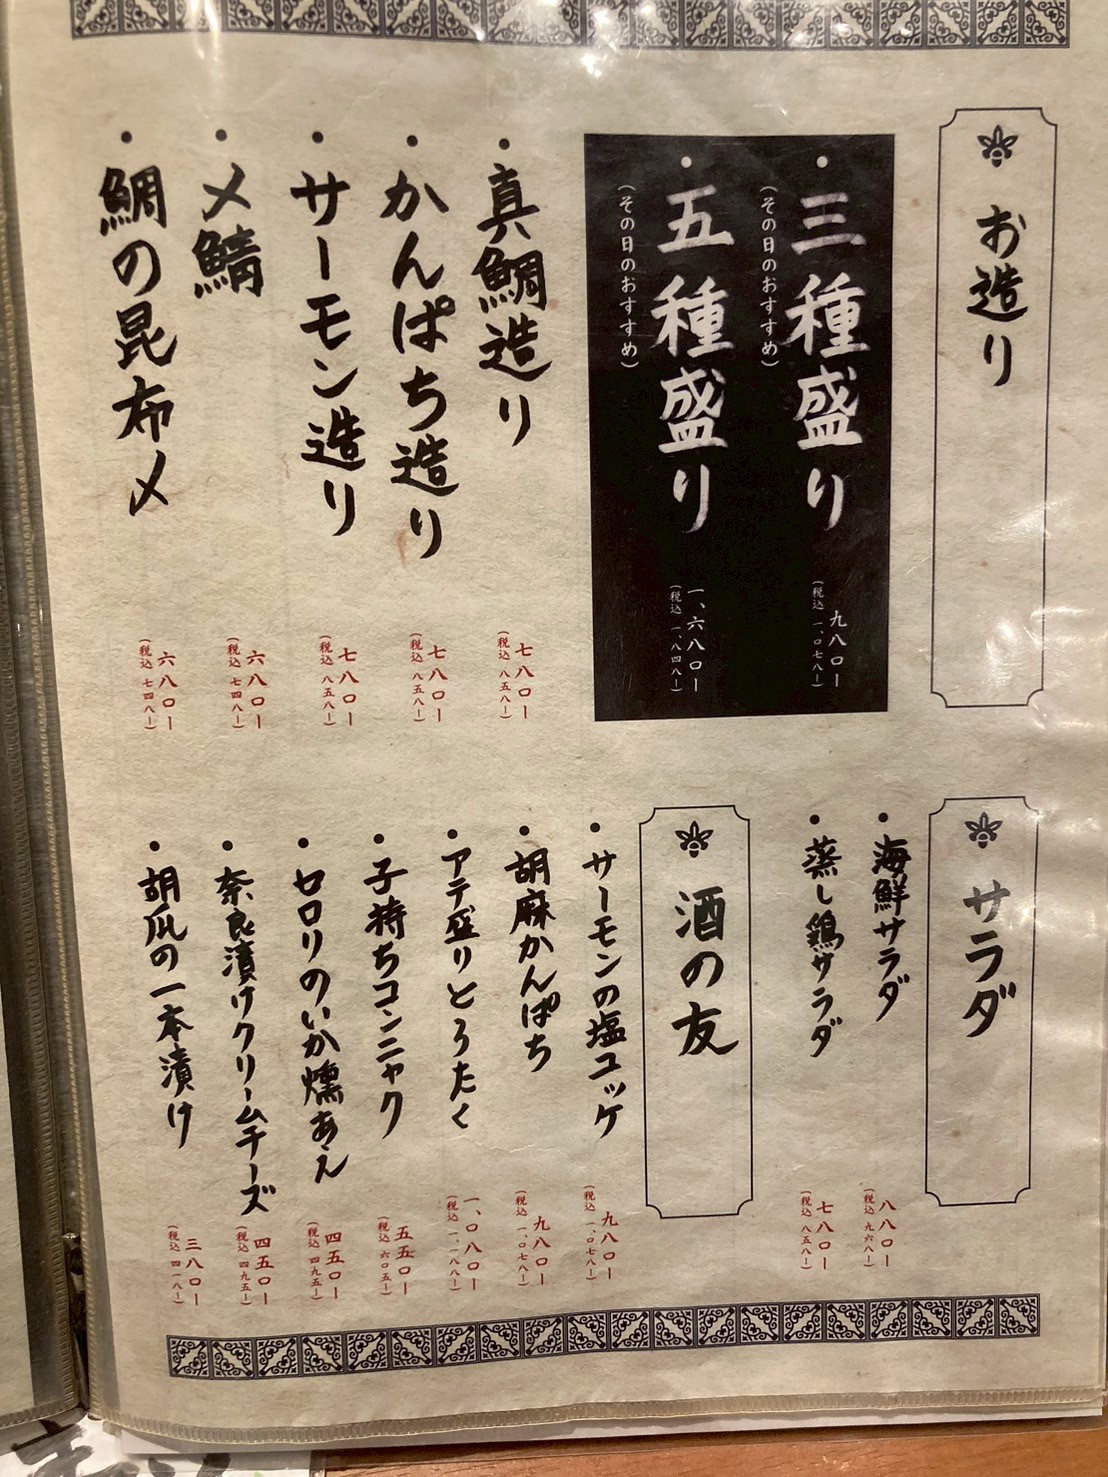 お造り
・三種盛り
（その日のおすすめ）
九八〇ー
（税込 一、〇七八ー）
・五種盛り
（その日のおすすめ）
一、六八〇ー
（税込 一、八四八ー）
・真鯛造り
七八〇ー
（税込 八五八ー）
・かんぱち造り
七八〇ー
（税込 八五八ー）
・サーモン造り
七八〇ー
（税込 八五八ー）
・〆鯖
六八〇ー
（税込 七四八ー）
・鯛の昆布〆
六八〇ー
（税込 七四八ー）
サラダ
・海鮮サラダ
八八〇ー
（税込 九六八ー）
・蒸し鶏サラダ
七八〇ー
（税込 八五八ー）
酒の友
・サーモンの塩ユッケ
九八〇ー
（税込 一、〇七八ー）
・胡麻かんぱち
九八〇ー
（税込 一、〇七八ー）
・アテ盛りとろたく
一、〇八〇ー
（税込 一、一八八ー）
・子持ちコンニャク
五五〇ー
（税込 六〇五ー）
・セロリのいか燻あえ
四五〇ー
（税込 四九五ー）
・奈良漬けクリームチーズ
四五〇ー
（税込 四九五ー）
・胡瓜の一本漬け
三八〇ー
（税込 四一八ー）